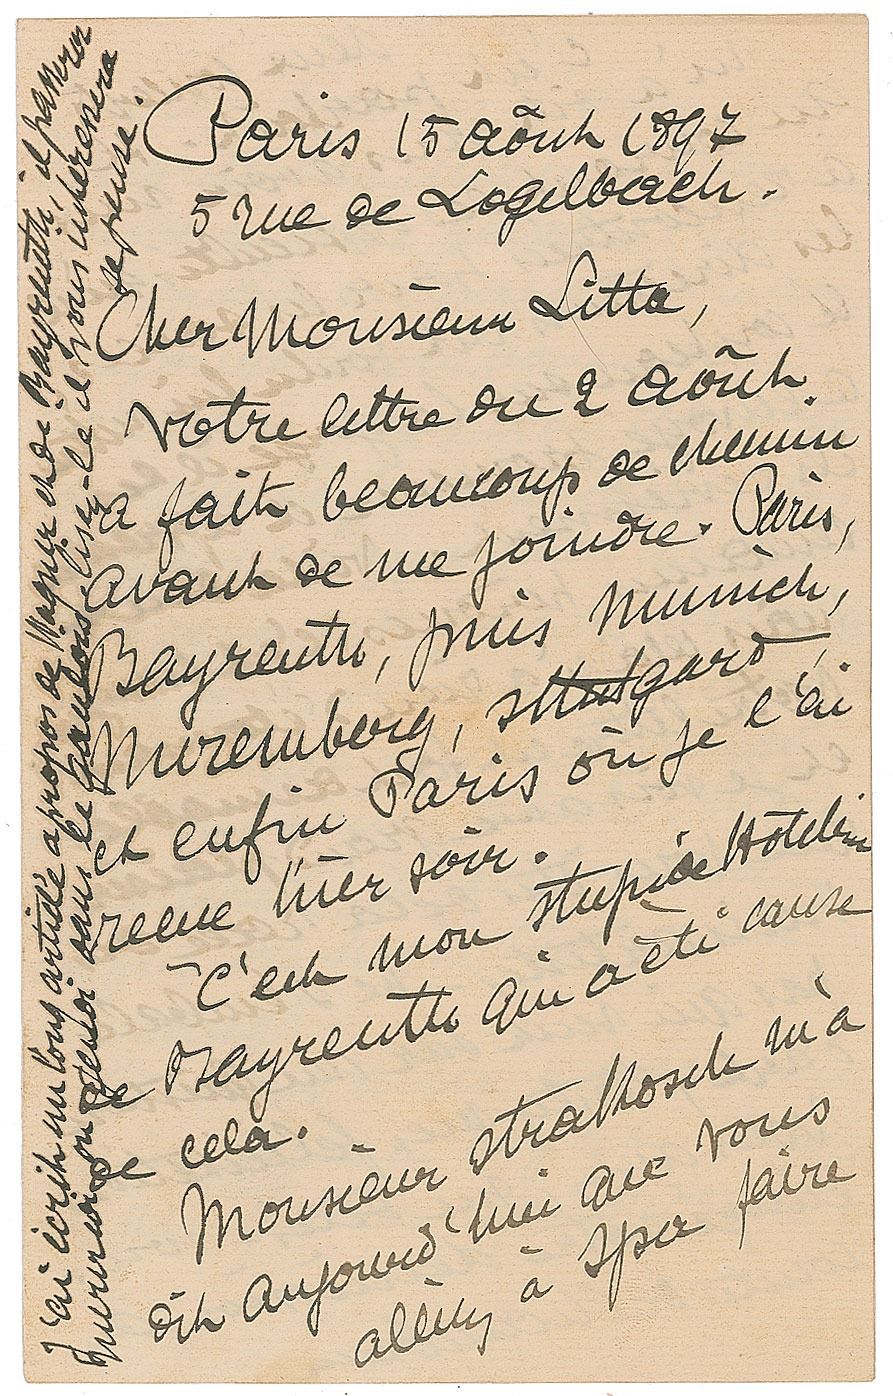 Paris 15 août 1897
5 rue de Logelbach.
Cher Monsieur Litta,
Votre lettre du 2 août
a fait beaucoup de chemin
avant de me joindre. Paris,
Bayreuth, puis Munich,
Nuremberg, Stuttgard,
et enfin Paris où je l'ai
reçue hier soir.
C'est mon stupide Hôtelier
de Bayreuth qui a été cause
de cela.
Monsieur Strakosch m'a
dit aujourd'hui que vous
alliez à Spa faire
J'ai écrit un long article à propos de Wagner et de Bayreuth, il passera
mercredi ou jeudi dans le Gaulois, lisez-le il vous intéressera
je pense.